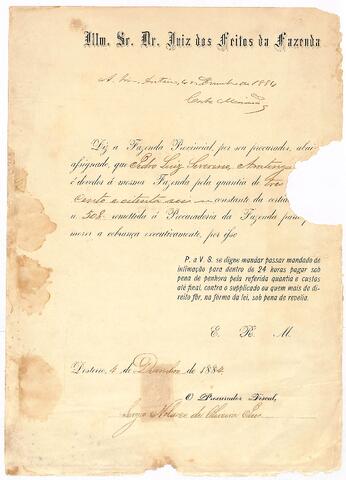 Illm. Sr. Dr. Juiz dos Feitos da Fazenda
A. 4 Dezembro de 1884
Diz a Fazenda Provincial, por seu procurador, abai
assignado, que Pedro Luiz Severino
é devedor á mesma Fazenda pela quantia de
cento e oitenta reis constante da certi
n. 308 remettida á Procuradoria da Fazenda para
mover a cobrança executivamente, por isso
P. a V. S. se digne mandar passar mandado de
intimação para dentro de 24 horas pagar sob
pena de penhora pela referida quantia e custas
até final, contra o supplicado ou quem mais de
direito fôr, na forma da lei, sob pena de revelia.
E. R. M.
Desterro, 4 de Dezembro de 1884
O Procurador Fiscal,
Sergio de Oliveira